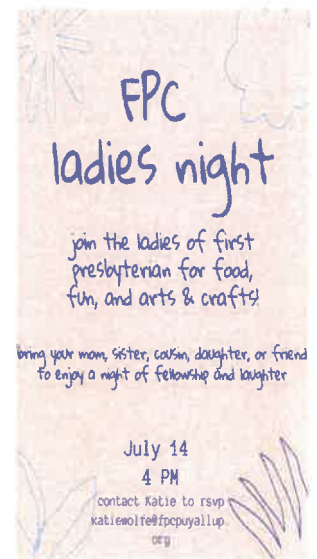 FPC
ladies night
join the ladies of first
presbyterian for food,
fun, and arts & crafts!
bring your mom, sister, cousin, daughter, or friend
to enjoy a night of fellowship and laughter
July 14
4 PM
contact Katie to rsvp
katiewolfe@fpcpuyallup.
org